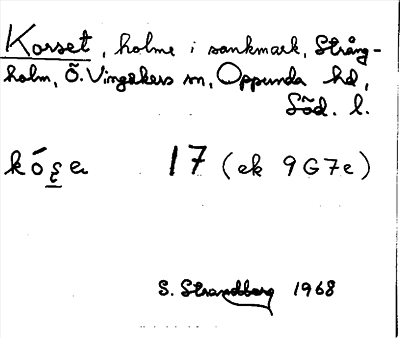 Korset, holme i sankmark, Strång-
holm, Ö. Vingåkers sn, Oppunda hd,
Söd. l.
17 (ek 9G7e)
S. Strandberg 1968